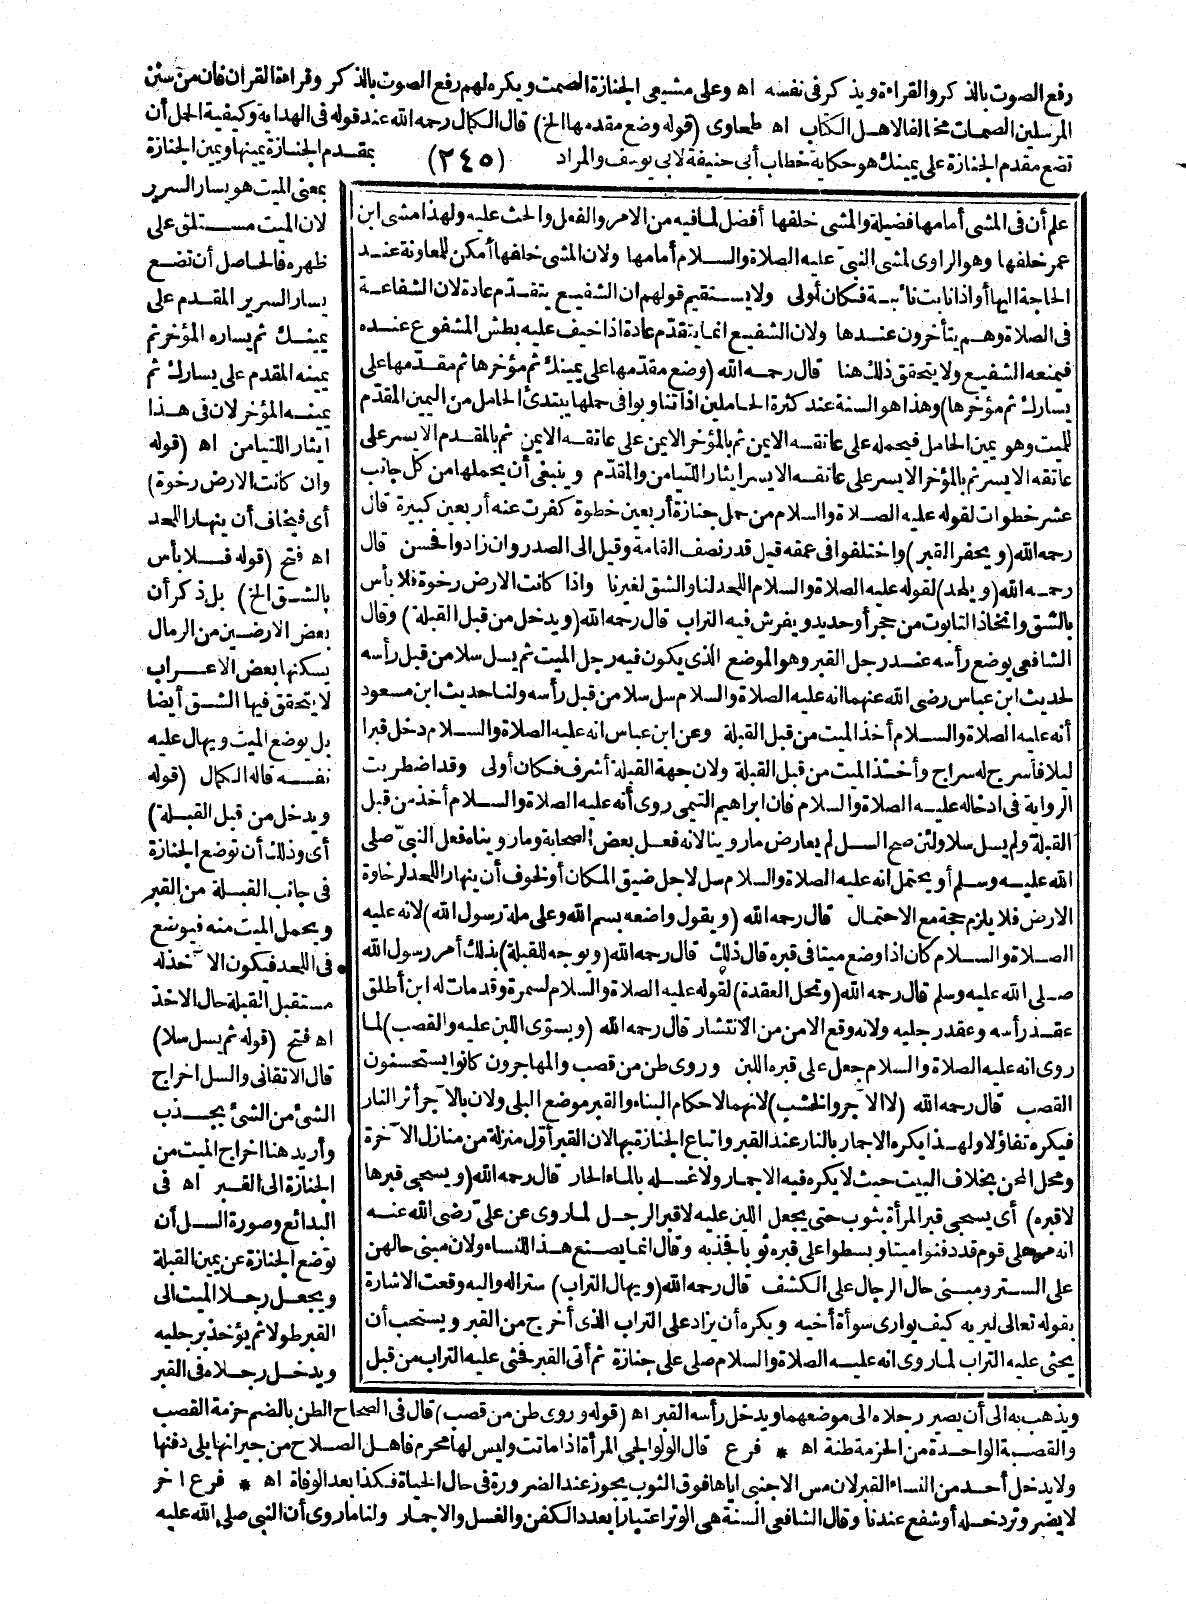 رفع الصوت بالذكر والقراءة ويذكر في نفسه اه وعلى مشيعي الجنازة الصمت ويكره لهم رفع الصوت بالذكر وقراءة القران فان من سنن
المرسلين الصمات مخالفا لاهل الكتاب اه طحاوى (قوله وضع مقدمها الخ) قال الكمال رحمه الله عند قوله فى الهداية وكيفية الحمل أن
تضع مقدم الجنازة على يمينك هو حكاية خطاب أبى حنيفة لابى يوسف والمراد (٢٤٥) بمقدم الجنازة يمينها ويمين الجنازة
بمعنى الميت هو يسار السرير
لان الميت مستلق على
ظهره فالحاصل أن تضع
يسار السرير المقدم على
يمينك ثم يساره المؤخر ثم
يمينه المقدم على يسارك ثم
يمينه المؤخر لان فى هذا
ايثار التيامن اه (قوله
وان كانت الارض رخوة)
أى فيخاف أن ينهار اللحد
اه فتح (قوله فلا بأس
بالشق الخ) بل ذكر أن
بعض الارضين من الرمال
يسكنها بعض الاعراب
لا يتحقق فيها الشق أيضا
بل يوضع الميت ويهال عليه
نفسه قاله الكمال (قوله
ويدخل من قبل القبلة)
أى وذلك أن توضع الجنازة
فى جانب القبلة من القبر
ويحمل الميت منه فيوضع
فى اللحد فيكون الآخذ له
مستقبل القبلة حال الاخذ
اه فتح (قوله ثم يسل سلا)
قال الاتقانى والسل اخراج
الشئ من الشئ بجذب
وأريد هنا اخراج الميت من
الجنازة الى القبر اه فى
البدائع وصورة السل أن
توضع الجنازة عن يمين القبلة
ويجعل رجلا الميت الى
القبر طولا ثم يؤخذ برجليه
ويدخل رجلاه فى القبر
علم أن فى المشى أمامها فضيلة والمشى خلفها أفضل لما فيه من الامر والفعل والحث عليه ولهذا مشى ابن
عمر خلفها وهو الراوى لمشى النبى عليه الصلاة والسلام أمامها ولان المشى خلفها أمكن للمعاونة عند
الحاجة اليها أو اذا نابت نائبة فكان أولى ولا يستقيم قولهم ان الشفيع يتقدّم عادة لان الشفاعة
فى الصلاة وهم يتأخرون عندها ولان الشفيع انما يتقدّم عادة اذا خيف عليه بطش المشفوع عنده
فيمنعه الشفيع ولا يتحقق ذلك هنا قال رحمه الله (وضع مقدّمها على يمينك ثم مؤخرها ثم مقدّمها على
يسارك ثم مؤخرها) وهذا هو السنة عند كثرة الحاملين اذا تناوبوا فى حملها يبتدئ الحامل من اليمين المقدّم
للميت وهو يمين الحامل فيحمله على عاتقه الايمن ثم بالمؤخر الايمن على عاتقه الايمن ثم بالمقدم الايسر على
عاتقه الايسر ثم بالمؤخر الايسر على عاتقه الايسر ايثارا للتيامن والمقدّم وينبغى أن يحملها من كل جانب
عشر خطوات لقوله عليه الصلاة والسلام من حمل جنازة أربعين خطوة كفرت عنه أربعين كبيرة قال
رحمه الله (ويحفر القبر) واختلفوا فى عمقه قيل قدر نصف القامة وقيل الى الصدر وان زادوا فحسن قال
رحمه الله (ويلحد) لقوله عليه الصلاة والسلام اللحد لنا والشق لغيرنا واذا كانت الارض رخوة فلا بأس
بالشق واتخاذ التابوت من حجر أو حديد ويفرش فيه التراب قال رحمه الله (ويدخل من قبل القبلة) وقال
الشافعى يوضع رأسه عند رجل القبر وهو الموضع الذى يكون فيه رجل الميت ثم يسل سلا من قبل رأسه
لحديث ابن عباس رضى الله عنهما انه عليه الصلاة والسلام سل سلا من قبل رأسه ولنا حديث ابن مسعود
أنه عليه الصلاة والسلام أخذ الميت من قبل القبلة وعن ابن عباس انه عليه الصلاة والسلام دخل قبرا
ليلا فأسرج له سراج وأخذ الميت من قبل القبلة ولان جهة القبلة أشرف فكان أولى وقد اضطربت
الرواية فى ادخاله عليه الصلاة والسلام فان ابراهيم التيمى روى أنه عليه الصلاة والسلام أخذ من قبل
القبلة ولم يسل سلا ولئن صح السل لم يعارض ما روينا لانه فعل بعض الصحابة وما رويناه فعل النبىّ صلى
الله عليه وسلم أو يحتمل انه عليه الصلاة والسلام سل لاجل ضيق المكان أو لخوف أن ينهار اللحد لرخاوة
الارض فلا يلزم حجة مع الاحتمال قال رحمه الله (ويقول واضعه بسم الله وعلى ملة رسول الله) لانه عليه
الصلاة والسلام كان اذا وضع ميتا فى قبره قال ذلك قال رحمه الله (ويوجه للقبلة) بذلك أمر رسول الله
صلى الله عليه وسلم قال رحمه الله (وتحل العقدة) لقوله عليه الصلاة والسلام لسمرة وقد مات له ابن أطلق
عقد رأسه وعقد رجليه ولانه وقع الامن من الانتشار قال رحمه الله (ويسوّى اللبن عليه والقصب) لما
روى انه عليه الصلاة والسلام جعل على قبره اللبن وروى طن من قصب والمهاجرون كانوا يستحسنون
القصب قال رحمه الله (لا الآجر والخشب) لانهما لاحكام البناء والقبر موضع البلى ولان بالآجر أثر النار
فيكره تفاؤلا ولهذا يكره الاجمار بالنار عند القبر واتباع الجنازة بها لان القبر أوّل منزلة من منازل الآخرة
ومحل المحن بخلاف البيت حيث لا يكره فيه الاجمار ولا غسله بالماء الحار قال رحمه الله (ويسجى قبرها
لا قبره) أى يسجى قبر المرأة بثوب حتى يجعل اللبن عليه لا قبر الرجل لما روى عن علىّ رضى الله عنه
انه مر على قوم قد دفنوا ميتا وبسطوا على قبره ثوبا فجذبه وقال انما يصنع هذا النساء ولان مبنى حالهن
على الستر ومبنى حال الرجال على الكشف قال رحمه الله (ويهال التراب) سترا له واليه وقعت الاشارة
بقوله تعالى ليريه كيف يوارى سوأة أخيه ويكره أن يزاد على التراب الذى أخرج من القبر ويستحب أن
يحثى عليه التراب لما روى انه عليه الصلاة والسلام صلى على جنازة ثم أتى القبر فحثى عليه التراب من قبل
ويذهب به الى أن يصير رجلاه الى موضعهما ويدخل رأسه القبر اه (قوله وروى طن من قصب) قال فى الصحاح الطن بالضم حزمة القصب
والقصبة الواحدة من الحزمة طنة اه * فرع قال الولوالجى المرأة اذا ماتت وليس لها محرم فاهل الصلاح من جيرانها يلى دفنها
ولا يدخل أحد من النساء القبر لان مس الاجنبى اياها فوق الثوب يجوز عند الضرورة فى حال الحياة فكذا بعد الوفاة اه * فرع اخر
لا يضر وتر دخله أو شفع عندنا وقال الشافعى السنة هى الوتر اعتبارا بعدد الكفن والغسل والاجمار ولنا ما روى أن النبى صلى الله عليه